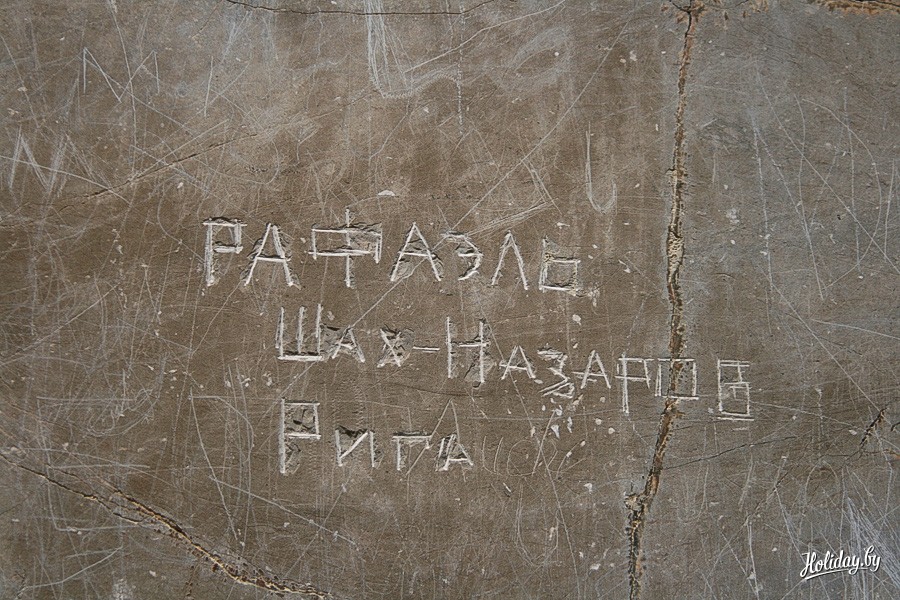 РАФАЭЛЬ
ШАХ-НАЗАРОВ
РИГА
Holiday.by